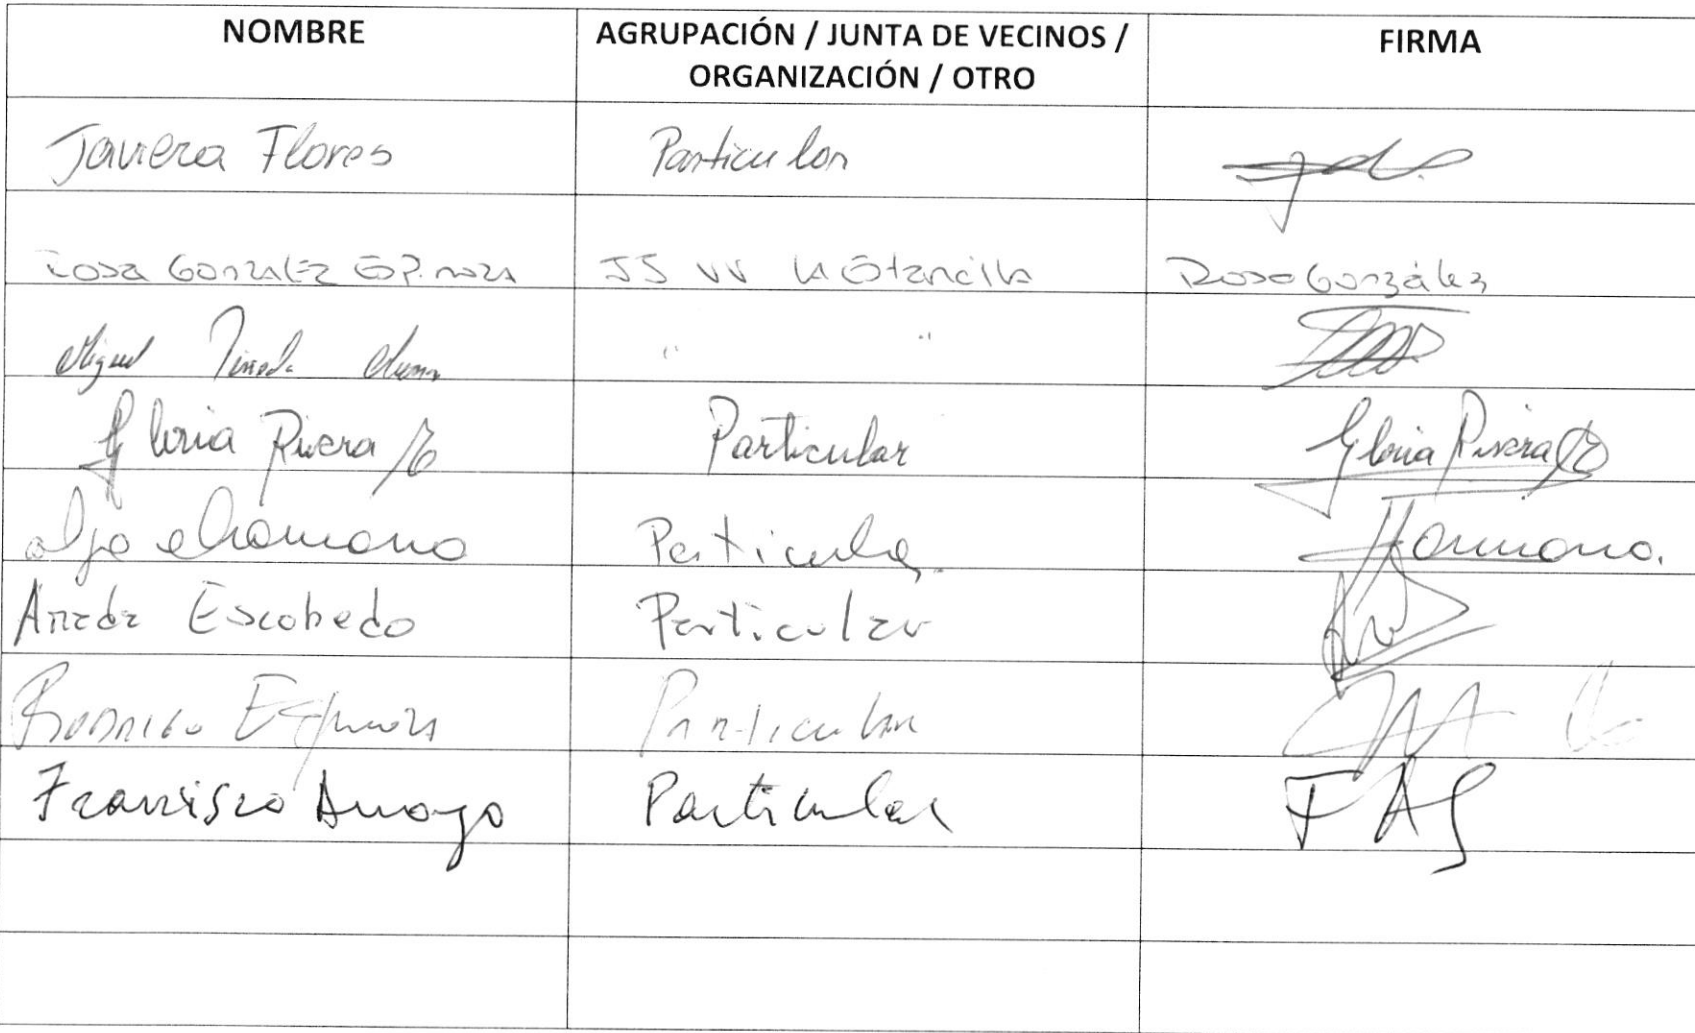 NOMBRE
AGRUPACIÓN / JUNTA DE VECINOS /
ORGANIZACIÓN / OTRO
FIRMA
Javiera Flores Particular
Rosa Gonzalez Espinoza JJ VV La Estancilla Rosa González
Miguel Pineda " "
Gloria Rivera Particular Gloria Rivera
Olga Particular
Escobedo Particular
Rodrigo Espinoza Particular
Francisco Arroyo Particular FAS